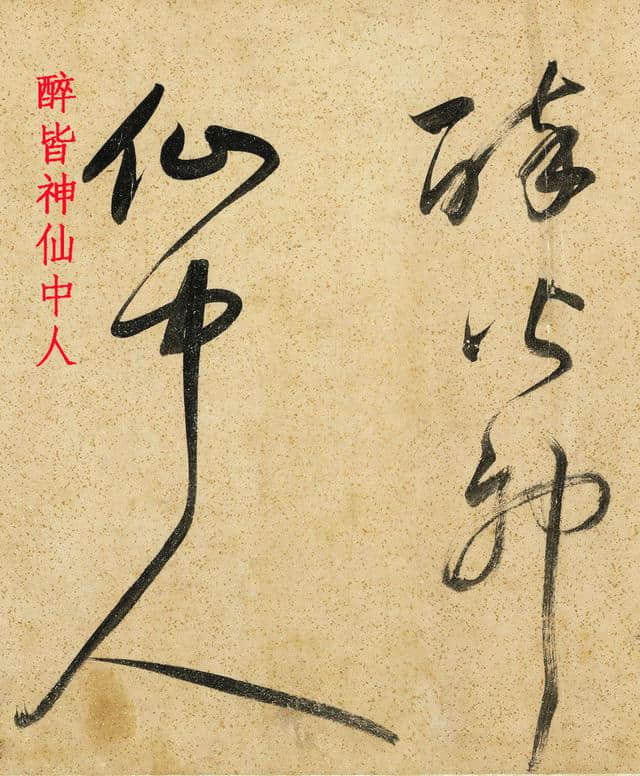 醉皆神
仙中人
醉皆神仙中人